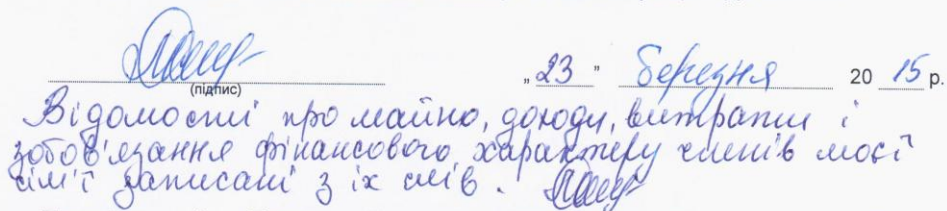 (підпис) „ 23 " березня 20 15 р.
Відомості про майно, доходи, витрати і
зобов'язання фінансового характеру членів моєї
сім'ї записані з їх слів.